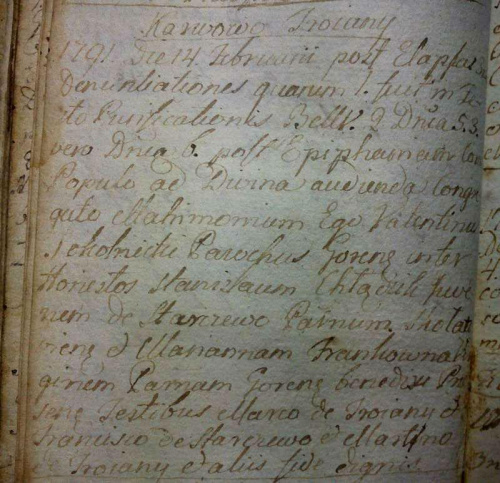 Karwowo Troiany
1791. Die 14 Februarii post Elapsas
Denuntiationes quarum 1. fuit in Fe-
sto Purificationis BMV. 2 Dnica 5. 3.
vero Dnica 6. post Epiphaniam Cor
Populo ad Divina audienda Congr
gato Matrimonium Ego Valentinus
Parochus Goren inter
Honestos Stanislaum juve
nem de Starczewo Parnum
et Mariannam Frankownam Vir
ginem Parnam Goren benedixi Pre
sens Testibus Marco de Troiany et
Francisco de Starczewo et Martino
de Troiany et aliis fide dignis